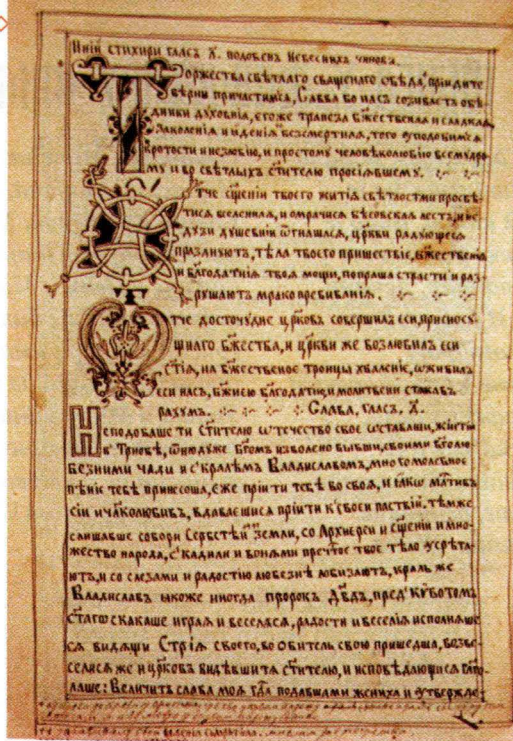 Инїй стихири гласъ д҃. подобенъ Небесныхъ чиновъ.
Торжества свѣтлаго священаго обѣда, прїидите
вѣрни причастимся, Савва бо насъ созиваетъ обѣ-
дники духовнїя, егоже трапеза бж҃ественная и сладкая
заколенїя и яденїя безсмертная, того уподобимся
кротости и незлобїю, и простому человѣколюбїю всемудро-
му и во свѣтлыхъ ст҃ителю просїявшему.
Отче сщ҃енїи твоего житїя свѣтлостми просвѣ-
тися вселенная, и омрачися бѣсовская лесть, и не-
дузи душевнїи ѿгнашася, цр҃кви радующеся
празднуютъ, тѣла твоего пришествїе, бж҃ественїя
и благодатнїя твоя мощи, попраша страсти и раз-
рушаютъ мракопребиванїя.
Отче досточудне цр҃ковъ совершилъ еси, присносу-
щнаго бж҃ества, и цр҃кви же возлюбилъ еси
ст҃ія, на бж҃ественое троицы хваленїе, оживилъ
еси насъ, бж҃иею бл҃годатїю, и молитвени стаकавъ
рахумъ. Слава, гласъ, д҃.
Неподобаше ти ст҃ителю ѿтечество свое ѿставлши, жити
в' Тривѣ, ѿнюдуже бг҃омъ изволено бывши, своими бг҃олю-
безними чади и с' кралемъ Владиславомъ, много молебное
пѣнїе тебѣ принесоша, еже прїити тебѣ во своя, и яко мл҃тивъ
сїи и чл҃колюбивъ, вдаваешися прїити к' своеи паствїи. тѣмже
слишавше собори Сербстѣй земли, со Архиереи и сщ҃енїи и мно-
жество народа, с' кадили и вонями пречт҃ое твое тѣло усрѣта-
ютъ, и со слезами и радостїю любезнѣ лобизаютъ, краль же
Владиславъ якоже иногда пророкъ Дв҃дъ, пред' кївотомъ
ст҃аго скакаше играя и веселяся, радости и веселїя исполняше-
ся видящи Стрїя своего, во обитель свою пришедша, возве-
селися же и цр҃ковъ видѣвши тя ст҃ителю, и исповѣдающися гл҃го-
лаше: Величитъ слава моя гд҃а подавшами жениха и утвержде-